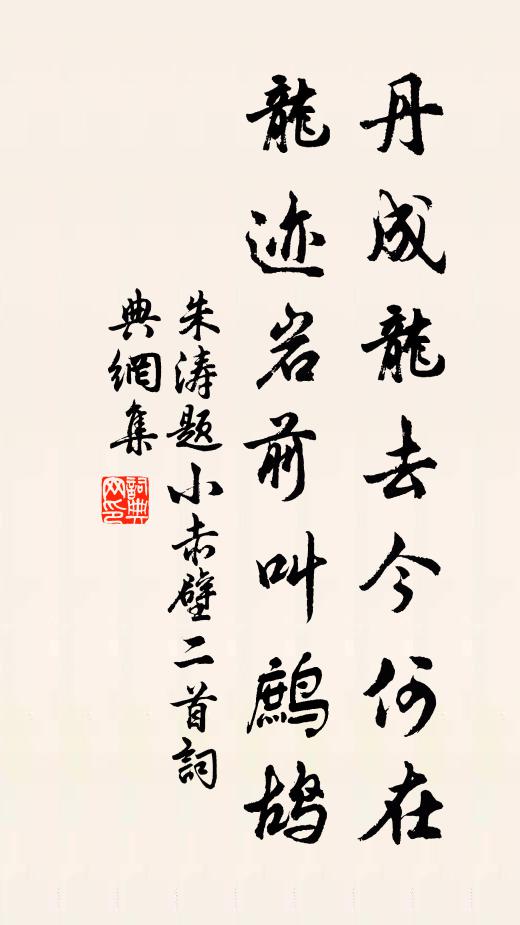 丹成龍去今何在
龍迹岩前叫鷓鴣
朱濤題小赤壁二首詞
典網集
詞典網印